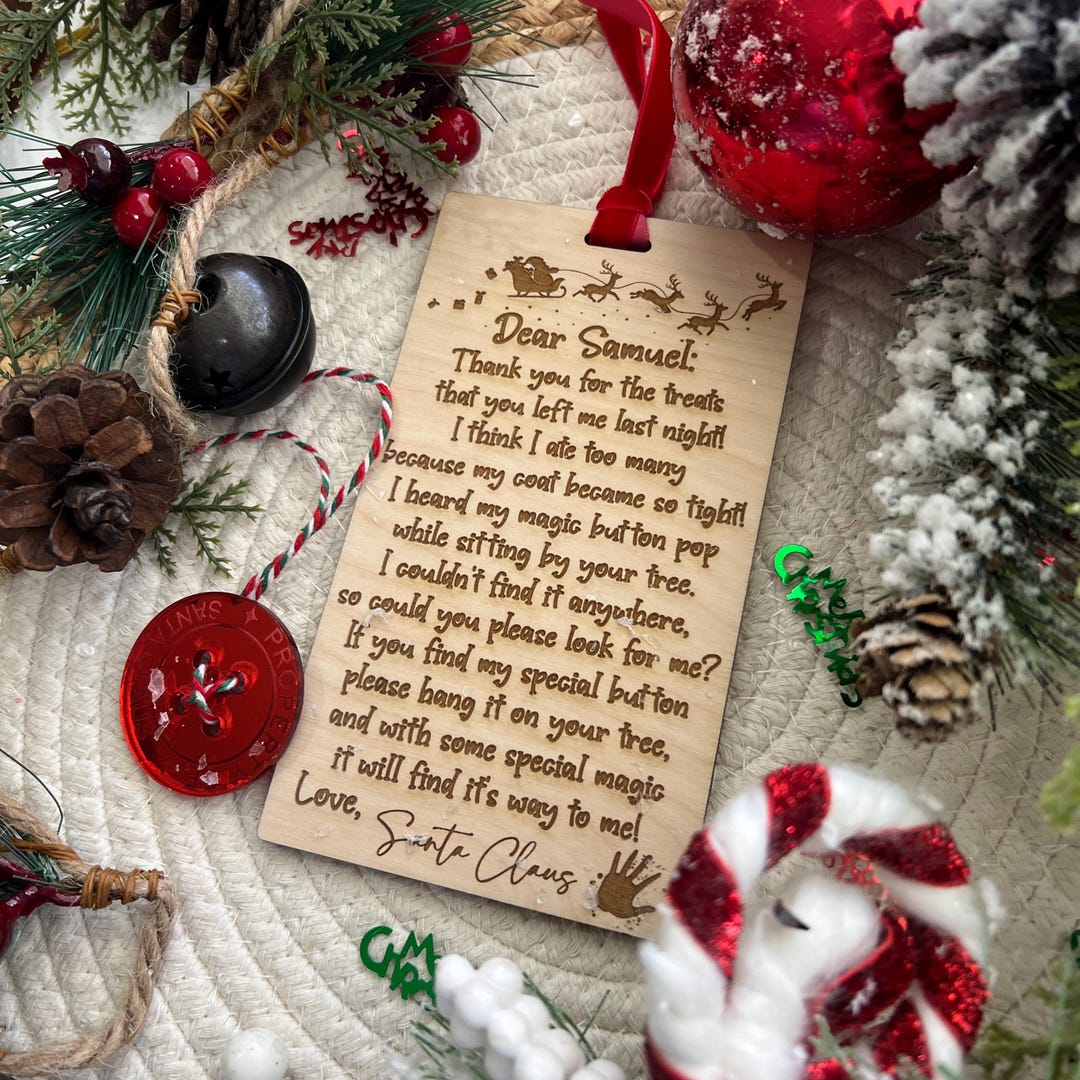 Dear Samuel:
Thank you for the treats
that you left me last night!
I think I ate too many
because my coat became so tight!
I heard my magic button pop
while sitting by your tree.
I couldn't find it anywhere,
so could you please look for me?
If you find my special button
please hang it on your tree,
and with some special magic
it will find it's way to me!
Love,
Santa Claus
SANTA
PROPERTY